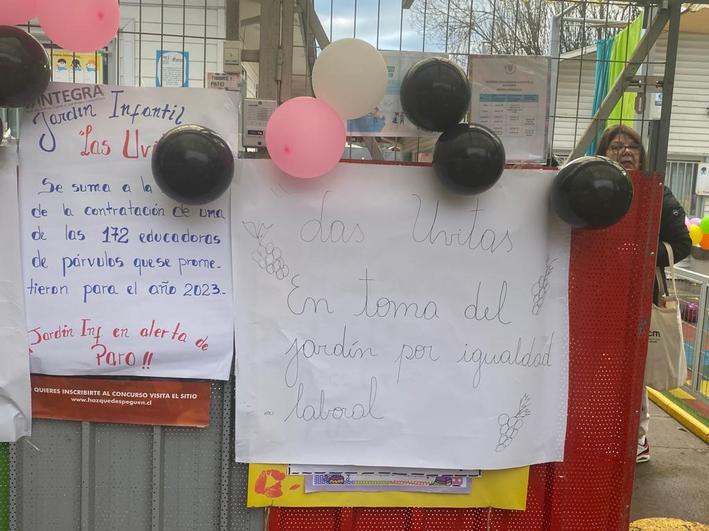 INTEGRA
Jardin Infantil
"Las Uv
Se suma a la
de la contratación de una
de las 172 educadoras
de párvulos que se prome-
tieron para el año 2023.
Jardin Inf en alerta de
Paro!!
QUIERES INSCRIBIRTE AL CONCURSO VISITA EL SITIO
www.hazquedespeguen.cl
TIMBRE
PATIO
Las Uvitas
En toma del
jardín por igualdad
laboral